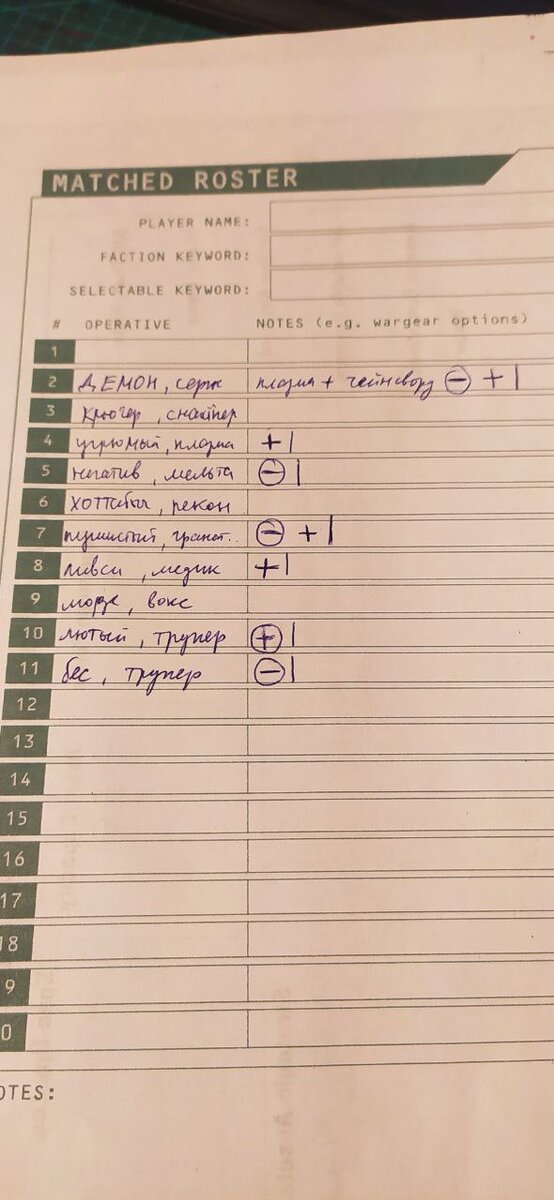 MATCHED ROSTER
PLAYER NAME:
FACTION KEYWORD:
SELECTABLE KEYWORD:
# OPERATIVE NOTES (e.g. wargear options)
1
2 ДЕМОН, серж плазма + чейнсворд ⊖ + |
3 Крюгер, снайпер
4 угрюмый, плазма + |
5 негатив, мельта ⊖ |
6 хоттабыч, рекон
7 пушистый, гранат.. ⊖ + |
8 ливси, медик + |
9 морзе, вокс
10 лютый, трупер ⊕ |
11 бес, трупер ⊖ |
12
13
14
15
16
17
18
9
0
OTES: